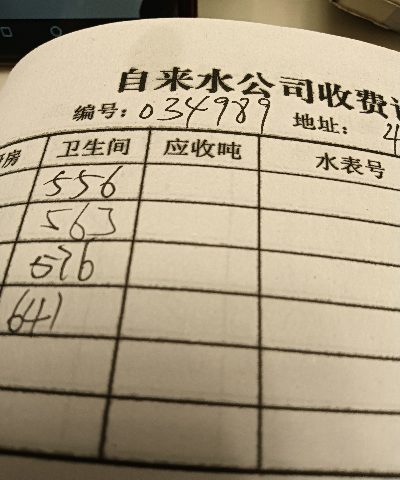 自来水公司收费
编号：034989 地址：4
房 卫生间 应收吨 水表号
556
563
576
641